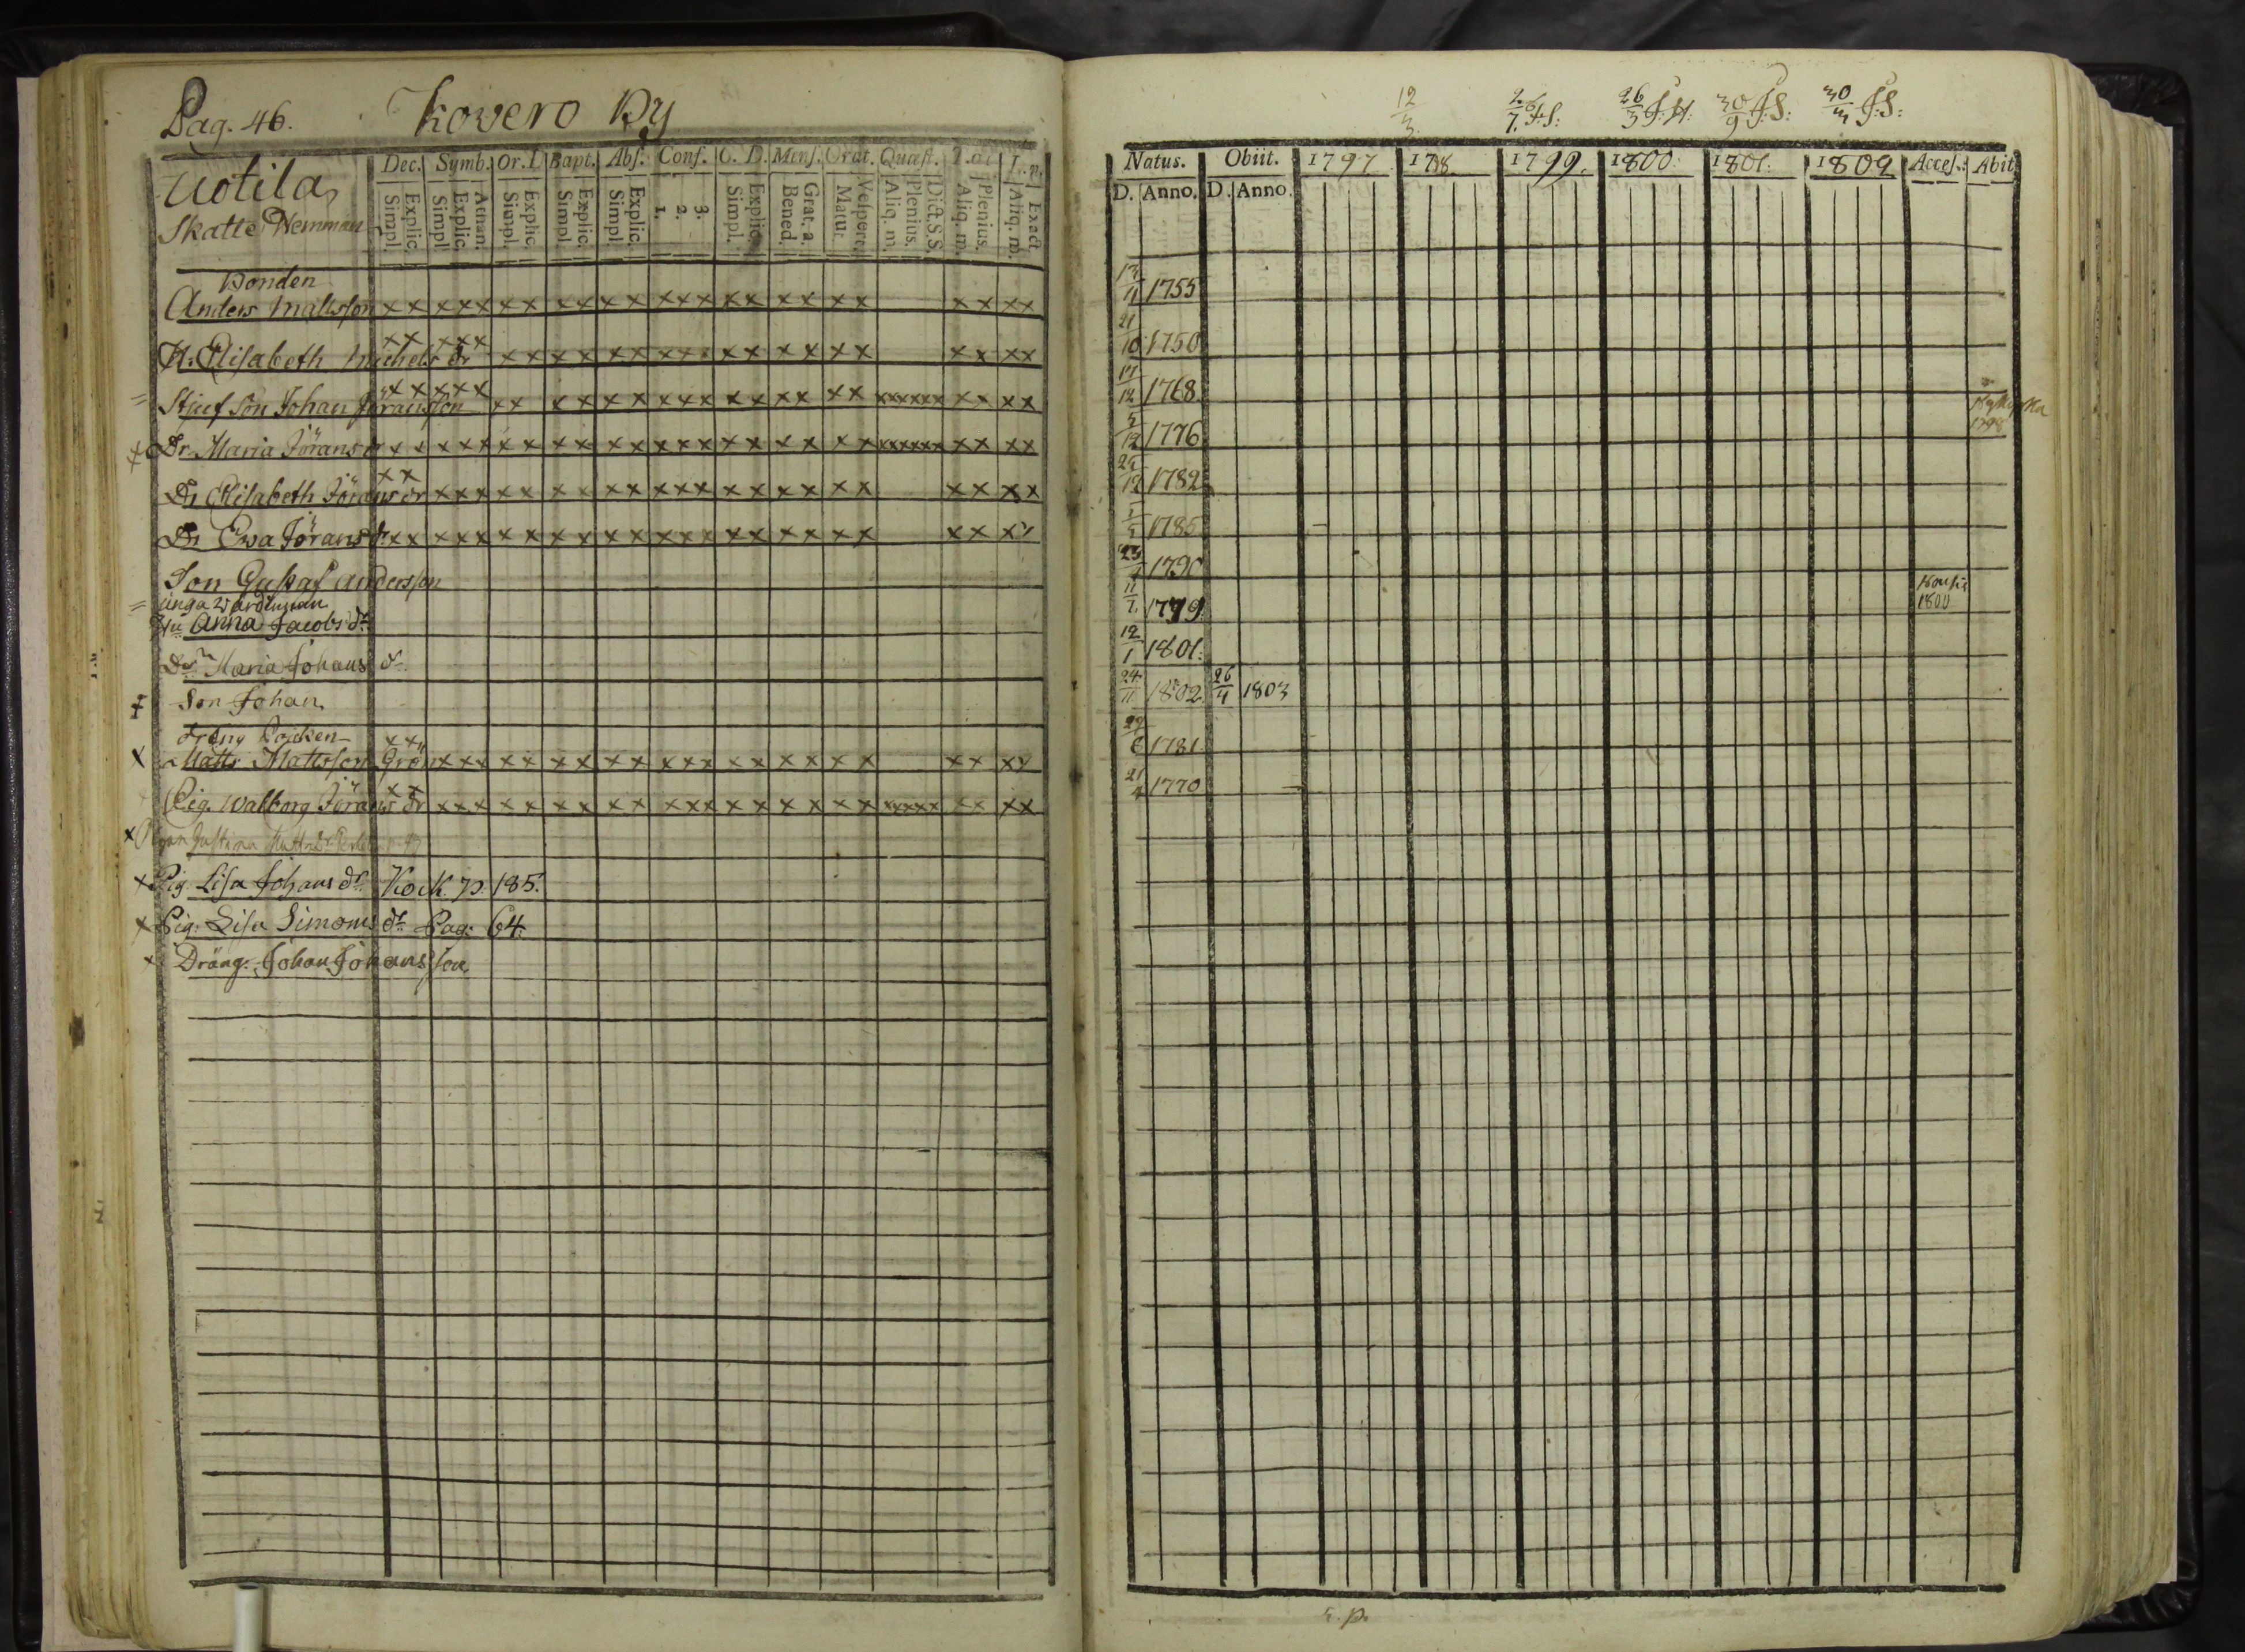 Pag. 46. Kovero By
Uotila,
Skatte Hemman
Dec. Symb. Or. D. Bapt. Abs. Conf. C. D. Mens. Orat. Quæst.
Explic. Simpl. Athan. Explic. Simpl. Explic. Simpl. Explic. Simpl. Explic. Simpl. 3. 2. 1. Explic. Simpl. Grat. a. Bened. Vesper. Matut. Dict. S.S. Plenius. Aliq. m. Plenius. Aliq. m. Exact. Aliq. m.
Bonden
Anders Mattsson x x x x x x x x x x x x x x x x x x x x x x x
H. Elisabeth Michels dr x x x x x x x x x x x x x x x x x x x x x x x
= Stjuf Son Johan Jöransson x x x x x x x x x x x x x x x x x x x xxxxxx x x x x
Dr. Maria Jörans dr x x x x x x x x x x x x x x x x x x x xxxxxx x x x x
Dr Elisabeth Jörans dr x x x x x x x x x x x x x x x x x x x x x x x
Dr Ewa Jörans dr x x x x x x x x x x x x x x x x x x x x x x x
Son Gustaf andersson
= unga Wärdinnan
Anna Jacobs dr
Dr Maria Johans dr.
Son Johan
Dreng Pojcken
x Matts Mattsson Grön x x x x x x x x x x x x x x x x x x x x
Pig. Walborg Jörans dr x x x x x x x x x x x x x x x x x x x xxxxx x x x x
x Pigan Justina
x Pig. Lisa Johans dr Kock p. 185.
x Pig: Lisa Simons dr Pag: 64.
x Dräng. Johan Johansson
12/3. 26/7. 26/3 30/9 J:S: 30/3 J:S:
Natus. Obiit. 1797 1798 1799. 1800. 1801. 1802 Acces. Abit.
D. Anno. D. Anno.
1755
21/10 1750
17/12 1768
1798
5/12 1776
1782
1785
1790
11/7. 1779 1800
12/1 1801.
24/11 1802 26/4 1803
29/6 1781.
21/4 1770